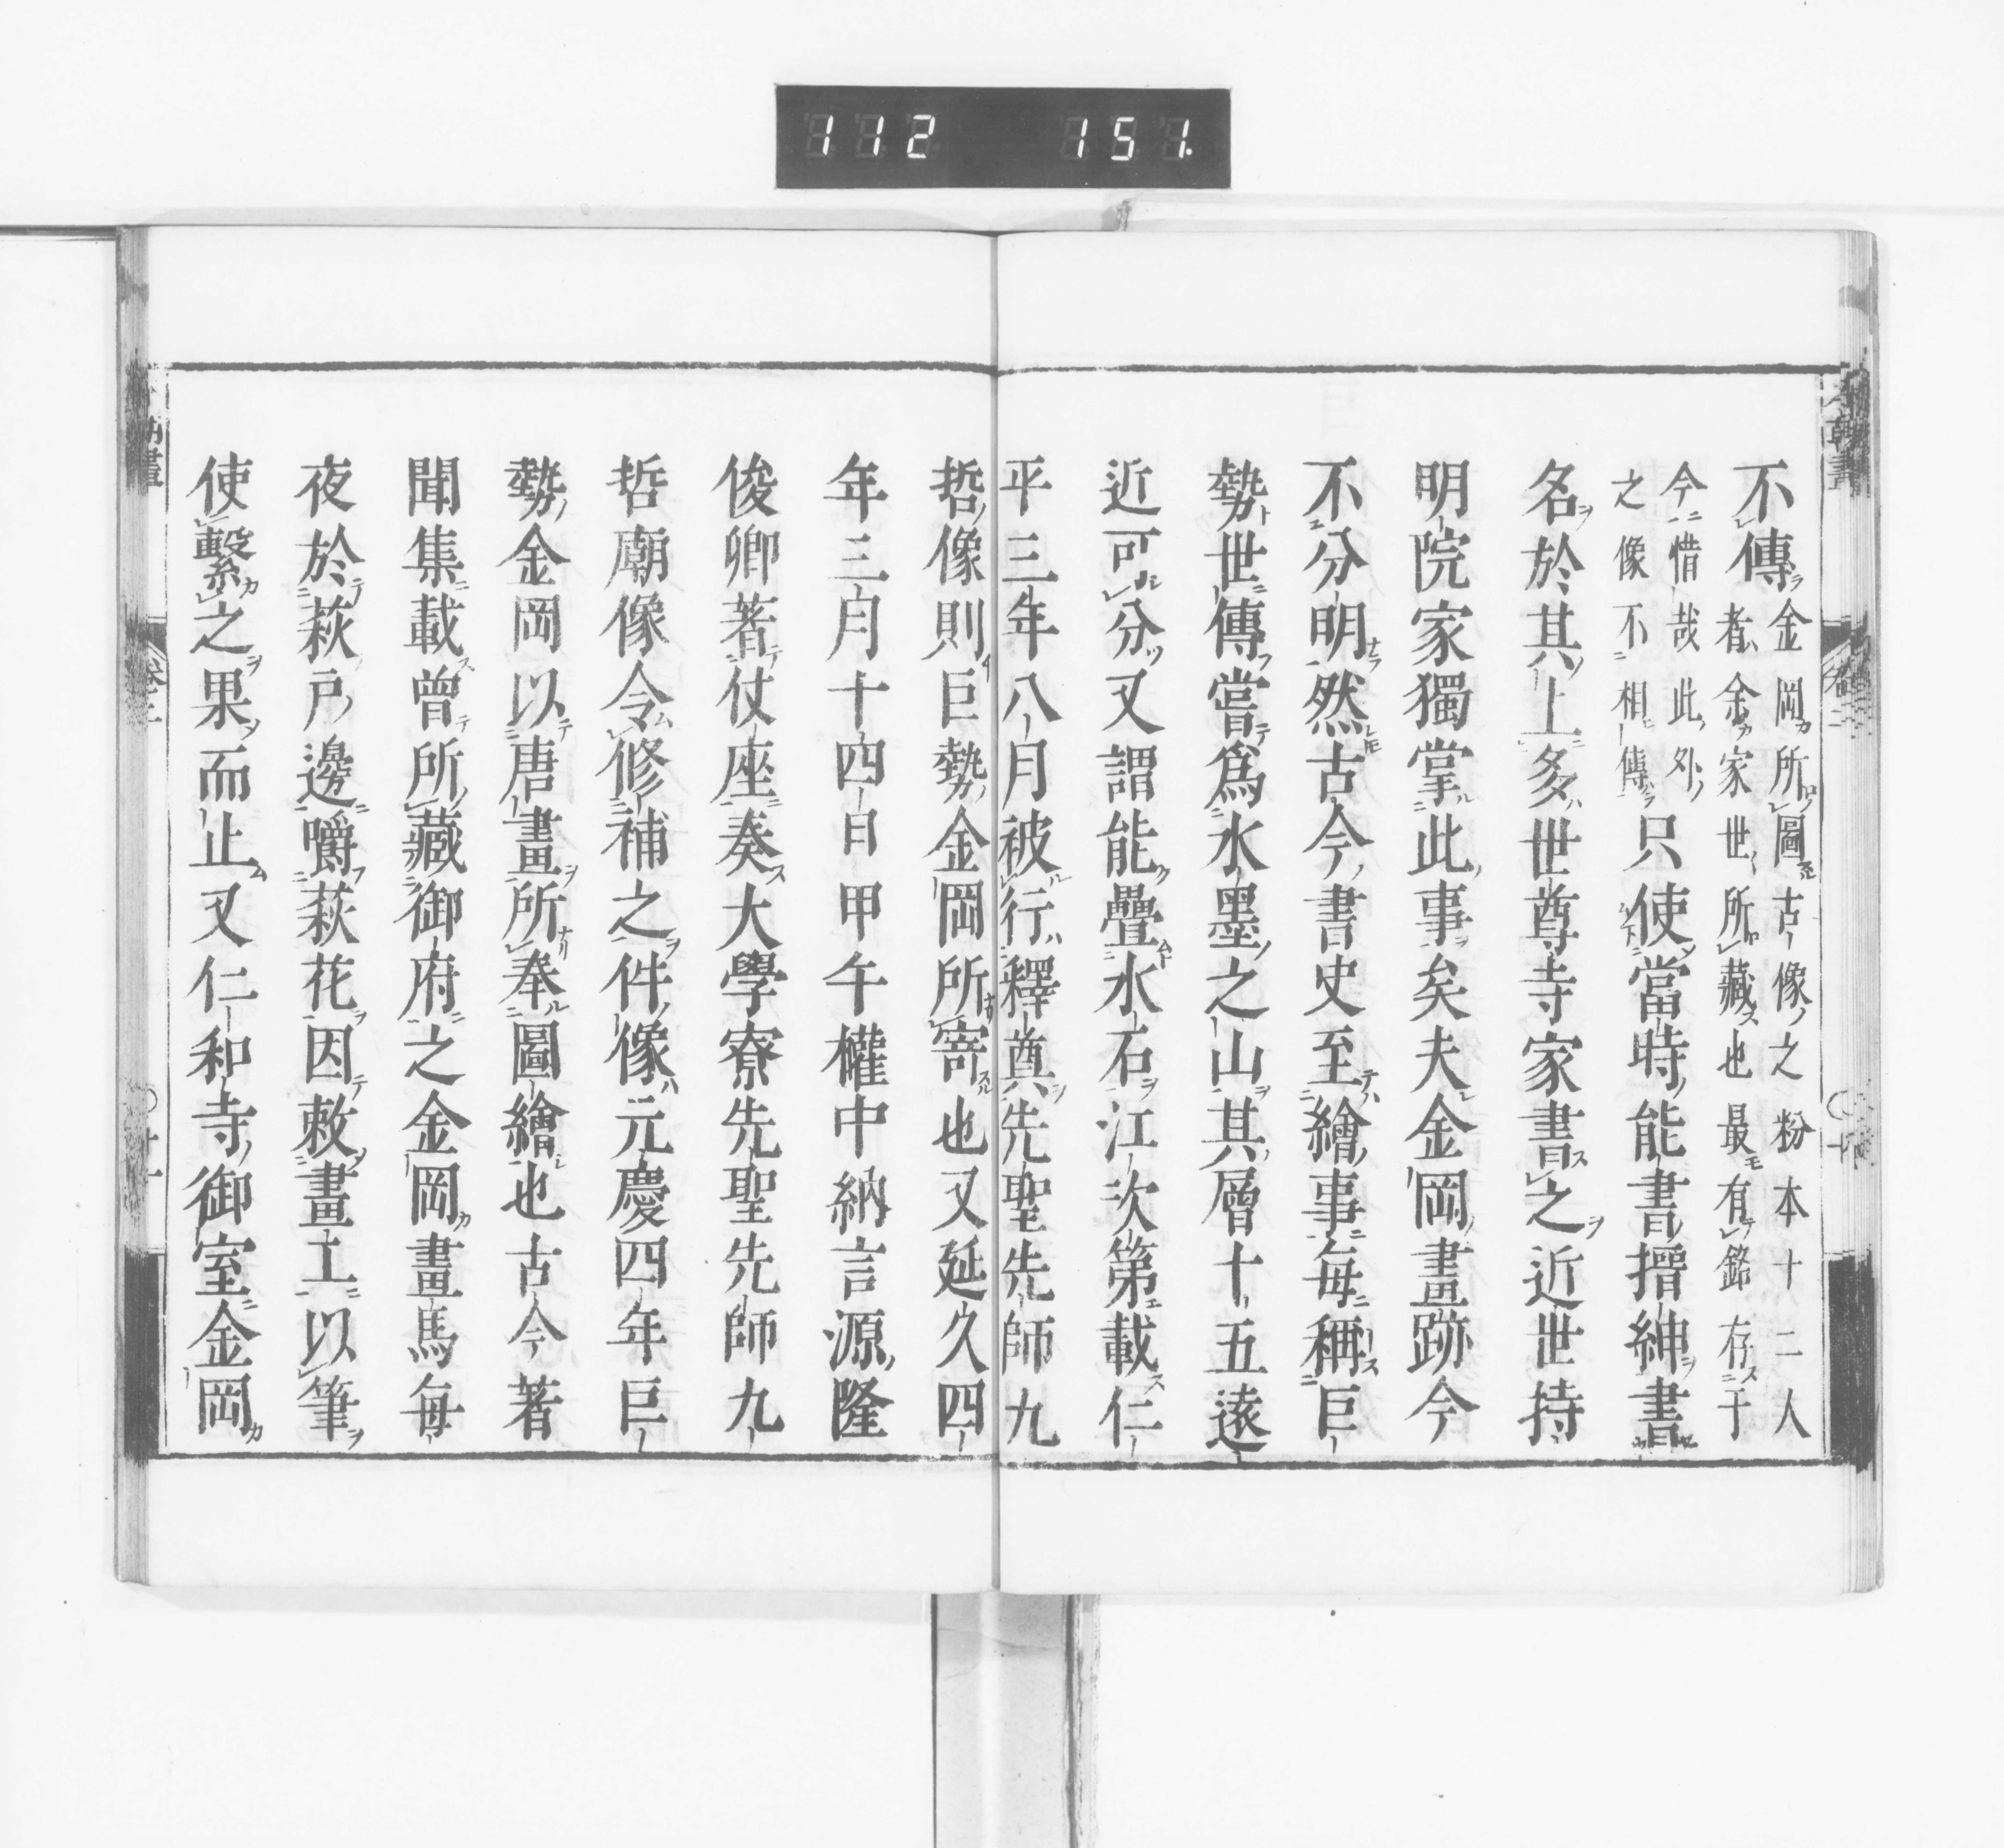 112 151.
不傳金岡所圖古像之粉本十二人
者金家世所藏也最有銘存于
今惜哉此外
之像不相傳只使當時能書搢紳書
名於其上多世尊寺家書之近世持
明院家獨掌此事矣夫金岡畫跡今
不分明然古今書史至繪事每稱巨
勢世傳嘗爲水墨之山其層十五遠
近可分又謂能疊水石江次第載仁
平三年八月被行釋奠先聖先師九
哲像則巨勢金岡所寄也又延久四
年三月十四日甲午權中納言源隆
俊卿著仗座奏大學寮先聖先師九
哲廟像令修補之件像元慶四年巨
勢金岡以唐畫所奉圖繪也古今著
聞集載曾所藏御府之金岡畫馬每
夜於萩戶邊嚼萩花因敕畫工以筆
使繫之果而止又仁和寺御室金岡
卷三